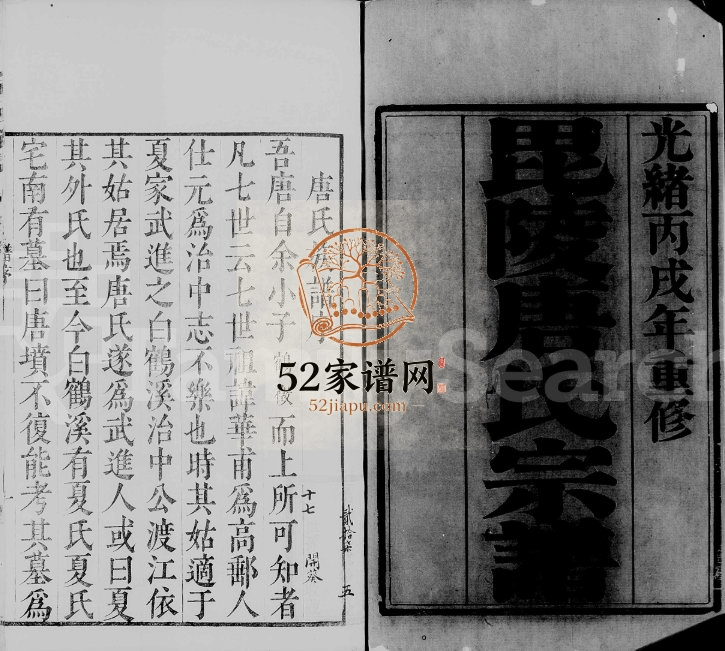 光緒丙戌年重修
毘陵唐氏宗譜
唐氏 譜序
吾唐自余小子鶴徵而上所可知者
凡七世云七世祖諱華甫爲高郵人
仕元爲治中志不樂也時其姑適于
夏家武進之白鶴溪治中公渡江依
其姑居焉唐氏遂爲武進人或曰夏
其外氏也至今白鶴溪有夏氏夏氏
宅南有墓曰唐墳不復能考其墓爲
譜序
十七
開葵
五
52家谱网
52jiapu.com
Search